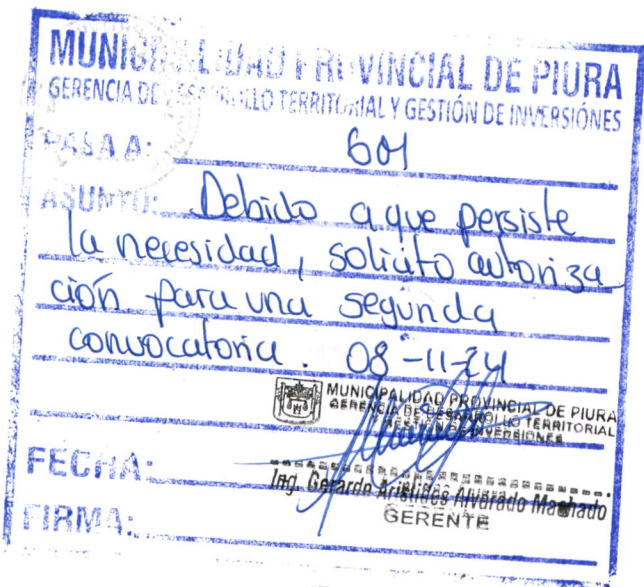 MUNICIPALIDAD PROVINCIAL DE PIURA
GERENCIA DE DESARROLLO TERRITORIAL Y GESTIÓN DE INVERSIÓNES
PASA A: 601
ASUNTO: Debido a que persiste
la necesidad, solicito autoriza
ción para una segunda
convocatoria. 08-11-24
MUNICIPALIDAD PROVINCIAL DE PIURA
GERENCIA DE DESARROLLO TERRITORIAL
GESTIÓN DE INVERSIONES
Ing. Gerardo Aristides Alvarado Machado
GERENTE
FECHA:
FIRMA: